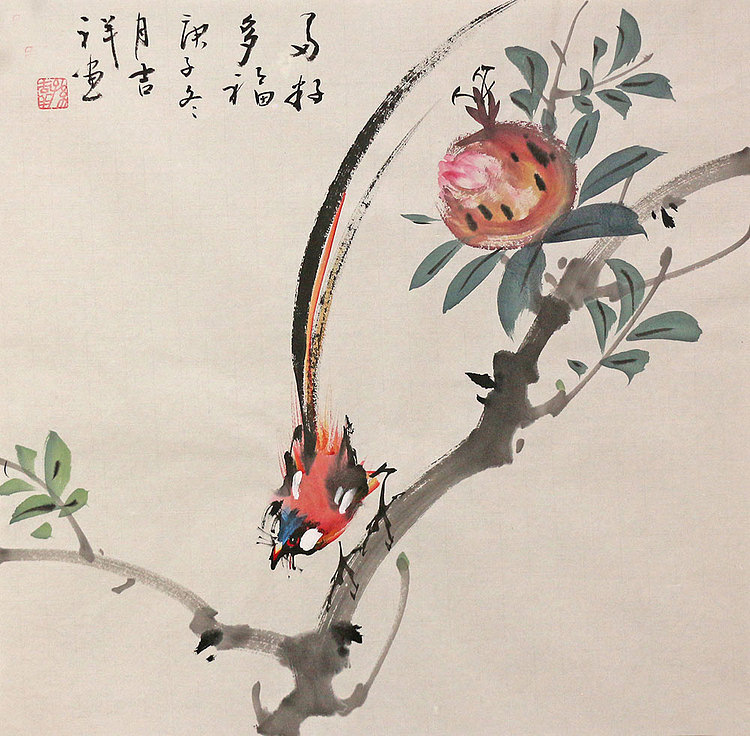 多籽
多福
庚子冬
月吉
祥画